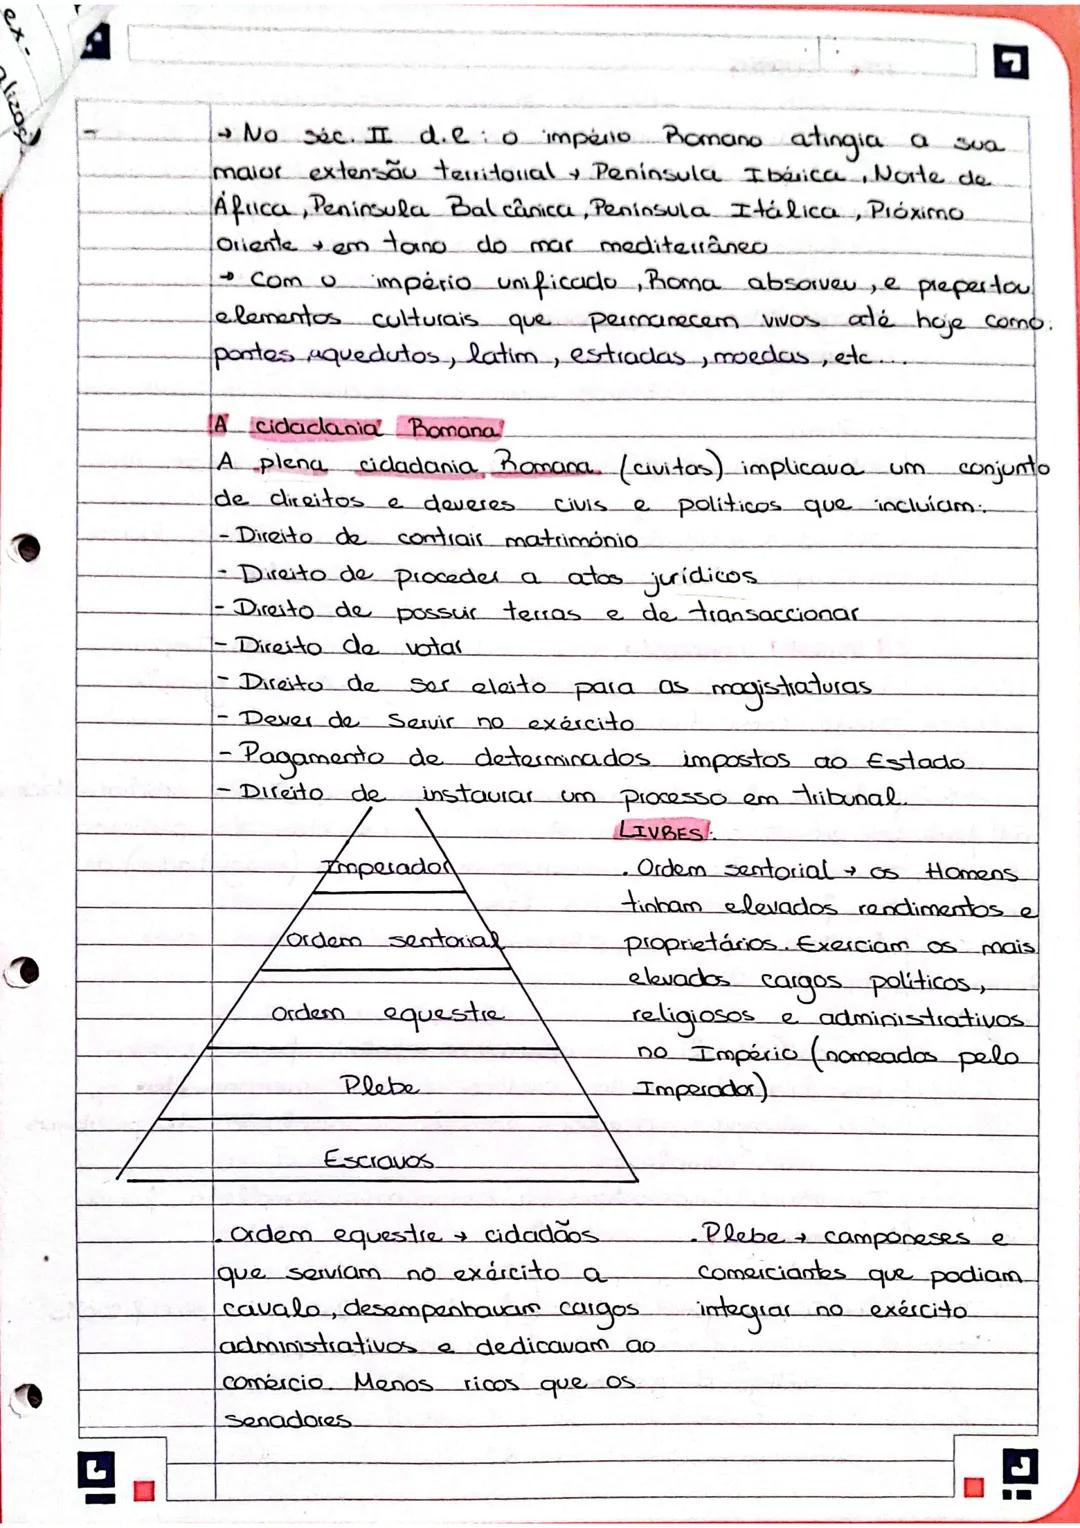 ex-
alizaç
→ No séc. II d.C: o império Romano atingia a sua
maior extensão territorial → Península Ibérica, Norte de
África, Península Balcânica, Península Itálica, Próximo
Oriente → em torno do mar mediterrâneo
→ Com o império unificado, Roma absorveu, e prepertou
elementos culturais que permanecem vivos até hoje como:
pontes, aquedutos, latim, estradas, moedas, etc...
A cidadania Romana
A plena cidadania Romana (civitas) implicava um conjunto
de direitos e deveres civis e políticos que incluíam:
- Direito de contrair matrimónio
- Direito de proceder a atos jurídicos
- Direito de possuir terras e de transaccionar
- Direito de votar
- Direito de ser eleito para as magistraturas
- Dever de servir no exército
- Pagamento de determinados impostos ao Estado
- Direito de instaurar um processo em tribunal.
Imperador
Ordem sentorial
Ordem equestre
Plebe
Escravos
LIVRES:
. Ordem sentorial → os Homens
tinham elevados rendimentos e
proprietários. Exerciam os mais
elevados cargos políticos,
religiosos e administrativos
no Império (nomeados pelo
Imperador)
. Ordem equestre → cidadãos
que serviam no exército a
cavalo, desempenhavam cargos
administrativos e dedicavam ao
comércio. Menos ricos que os
senadores
. Plebe → camponeses e
comerciantes que podiam
integrar no exército